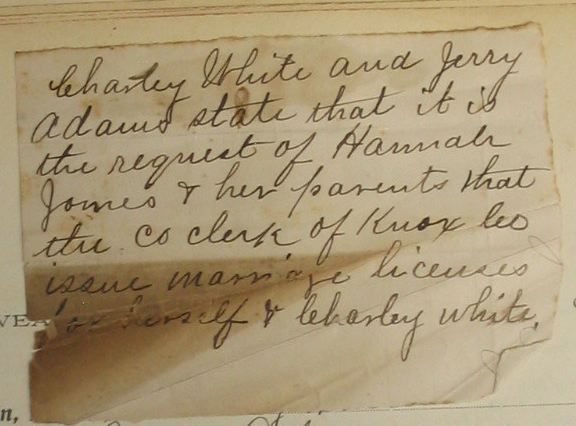 Charley White and Jerry
Adams state that it is
the request of Hannah
Jones & her parents that
the Co clerk of Knox Co
issue marriage licenses
for herself & Charley White.
VEA
n,